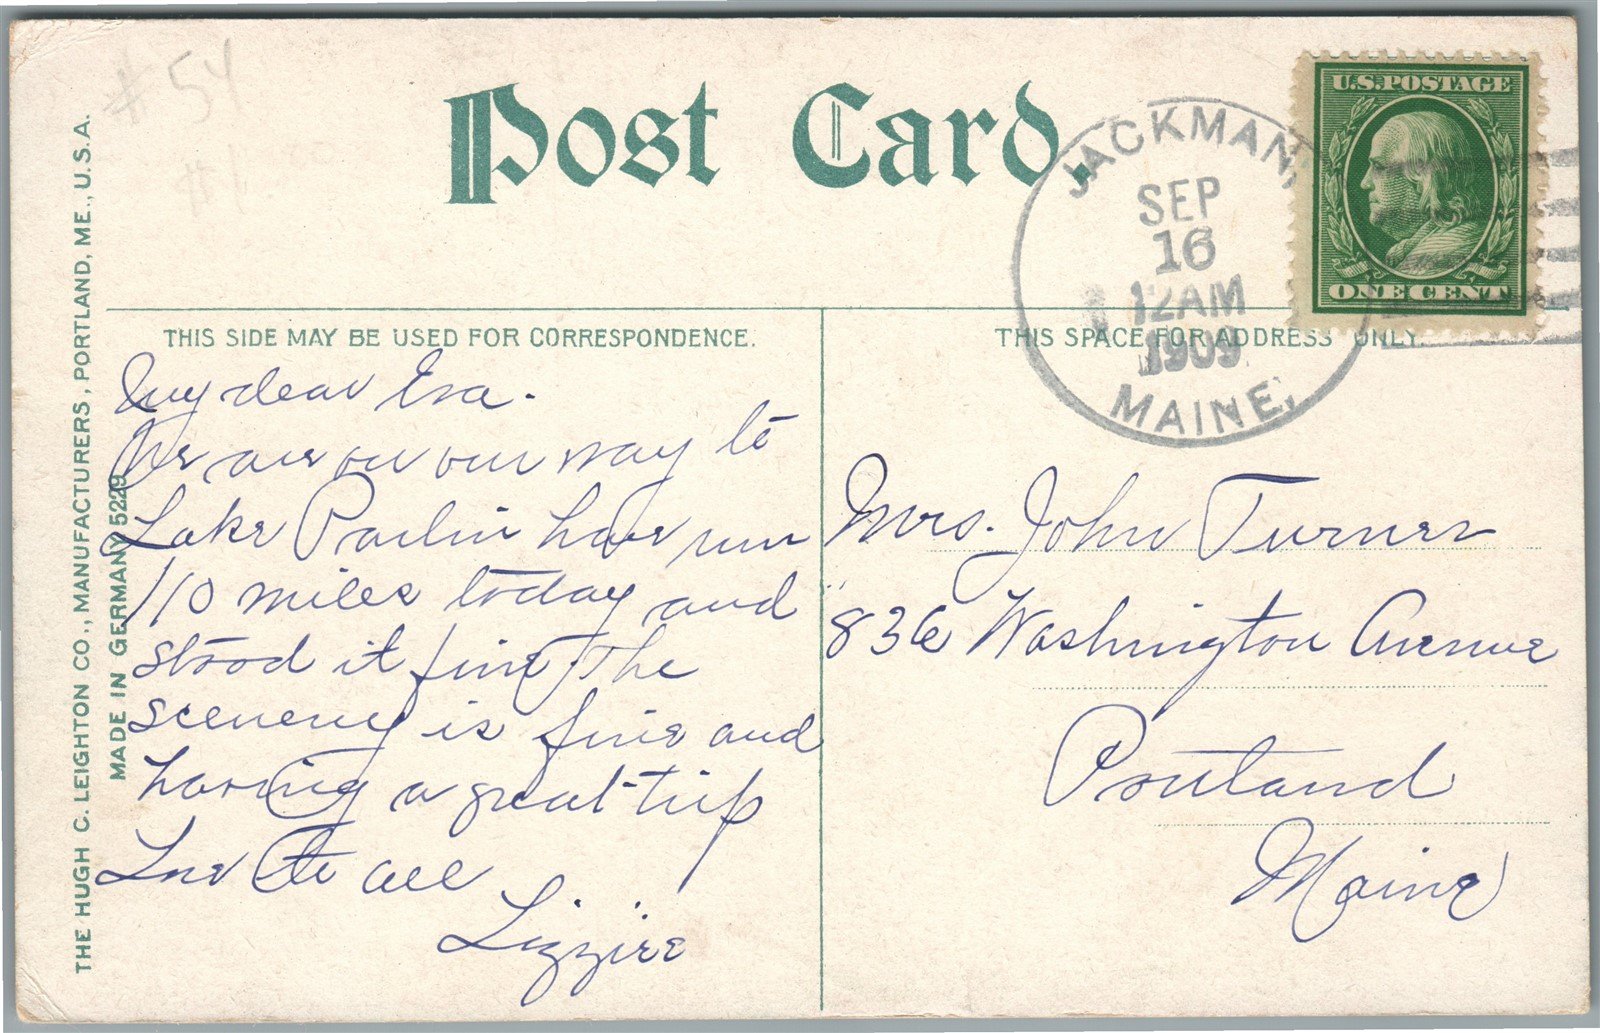 #54
#1.00
Post Card.
U.S. POSTAGE
ONE CENT
JACKMAN,
SEP
16
12AM
1909
MAINE.
THIS SIDE MAY BE USED FOR CORRESPONDENCE.
THIS SPACE FOR ADDRESS ONLY.
THE HUGH C. LEIGHTON CO., MANUFACTURERS, PORTLAND, ME., U.S.A.
MADE IN GERMANY 5229
My dear Eva.
We are on our way to
Lake Parlin have run
110 miles today and
stood it fine. The
scenery is fine and
having a great trip
Love to all
Lizzie
Mrs. John Turner
836 Washington Avenue
Portland
Maine